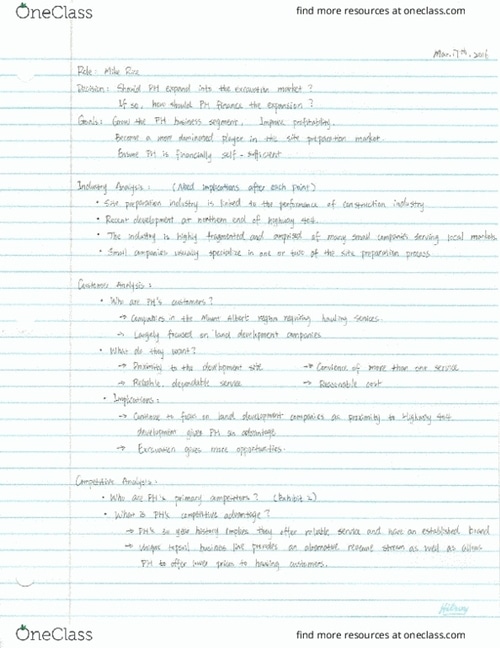 OneClass
find more resources at oneclass.com
Mar. 7th, 2016
Role: Mike Rice
Decision: Should PH expand into the excavation market?
If so, how should PH finance the expansion?
Goals: Grow the PH business segment. Improve profitability.
Become a more dominated player in the site preparation market.
Ensure PH is financially self-sufficient
Industry Analysis: (Need implications after each point)
• Site preparation industry is linked to the performance of construction industry
• Recent development at northern end of highway 404.
• The industry is highly fragmented and comprised of many small companies serving local markets
• Small companies usually specialize in one or two of the site preparation process.
Customer Analysis:
• Who are PH's customers?
→ Companies in the Mount Albert region requiring hauling services.
→ Largely focused on land development companies
• What do they want?
→ Proximity to the development site → Convience of more than one service
→ Reliable, dependable service → Reasonable cost
• Implications:
→ Continue to focus on land development companies as proximity to Highway 404
development gives PH an advantage
→ Excavation gives more opportunities.
Competitive Analysis:
• Who are PH's primary competitors? (Exhibit 2)
• What is PH's competitive advantage?
→ PH's 50 year history implies they offer reliable service and have an established brand
→ Unique topsoil business line provides an alternative revenue stream as well as allows
PH to offer lower prices to hauling customers.
Hilroy
OneClass
find more resources at oneclass.com